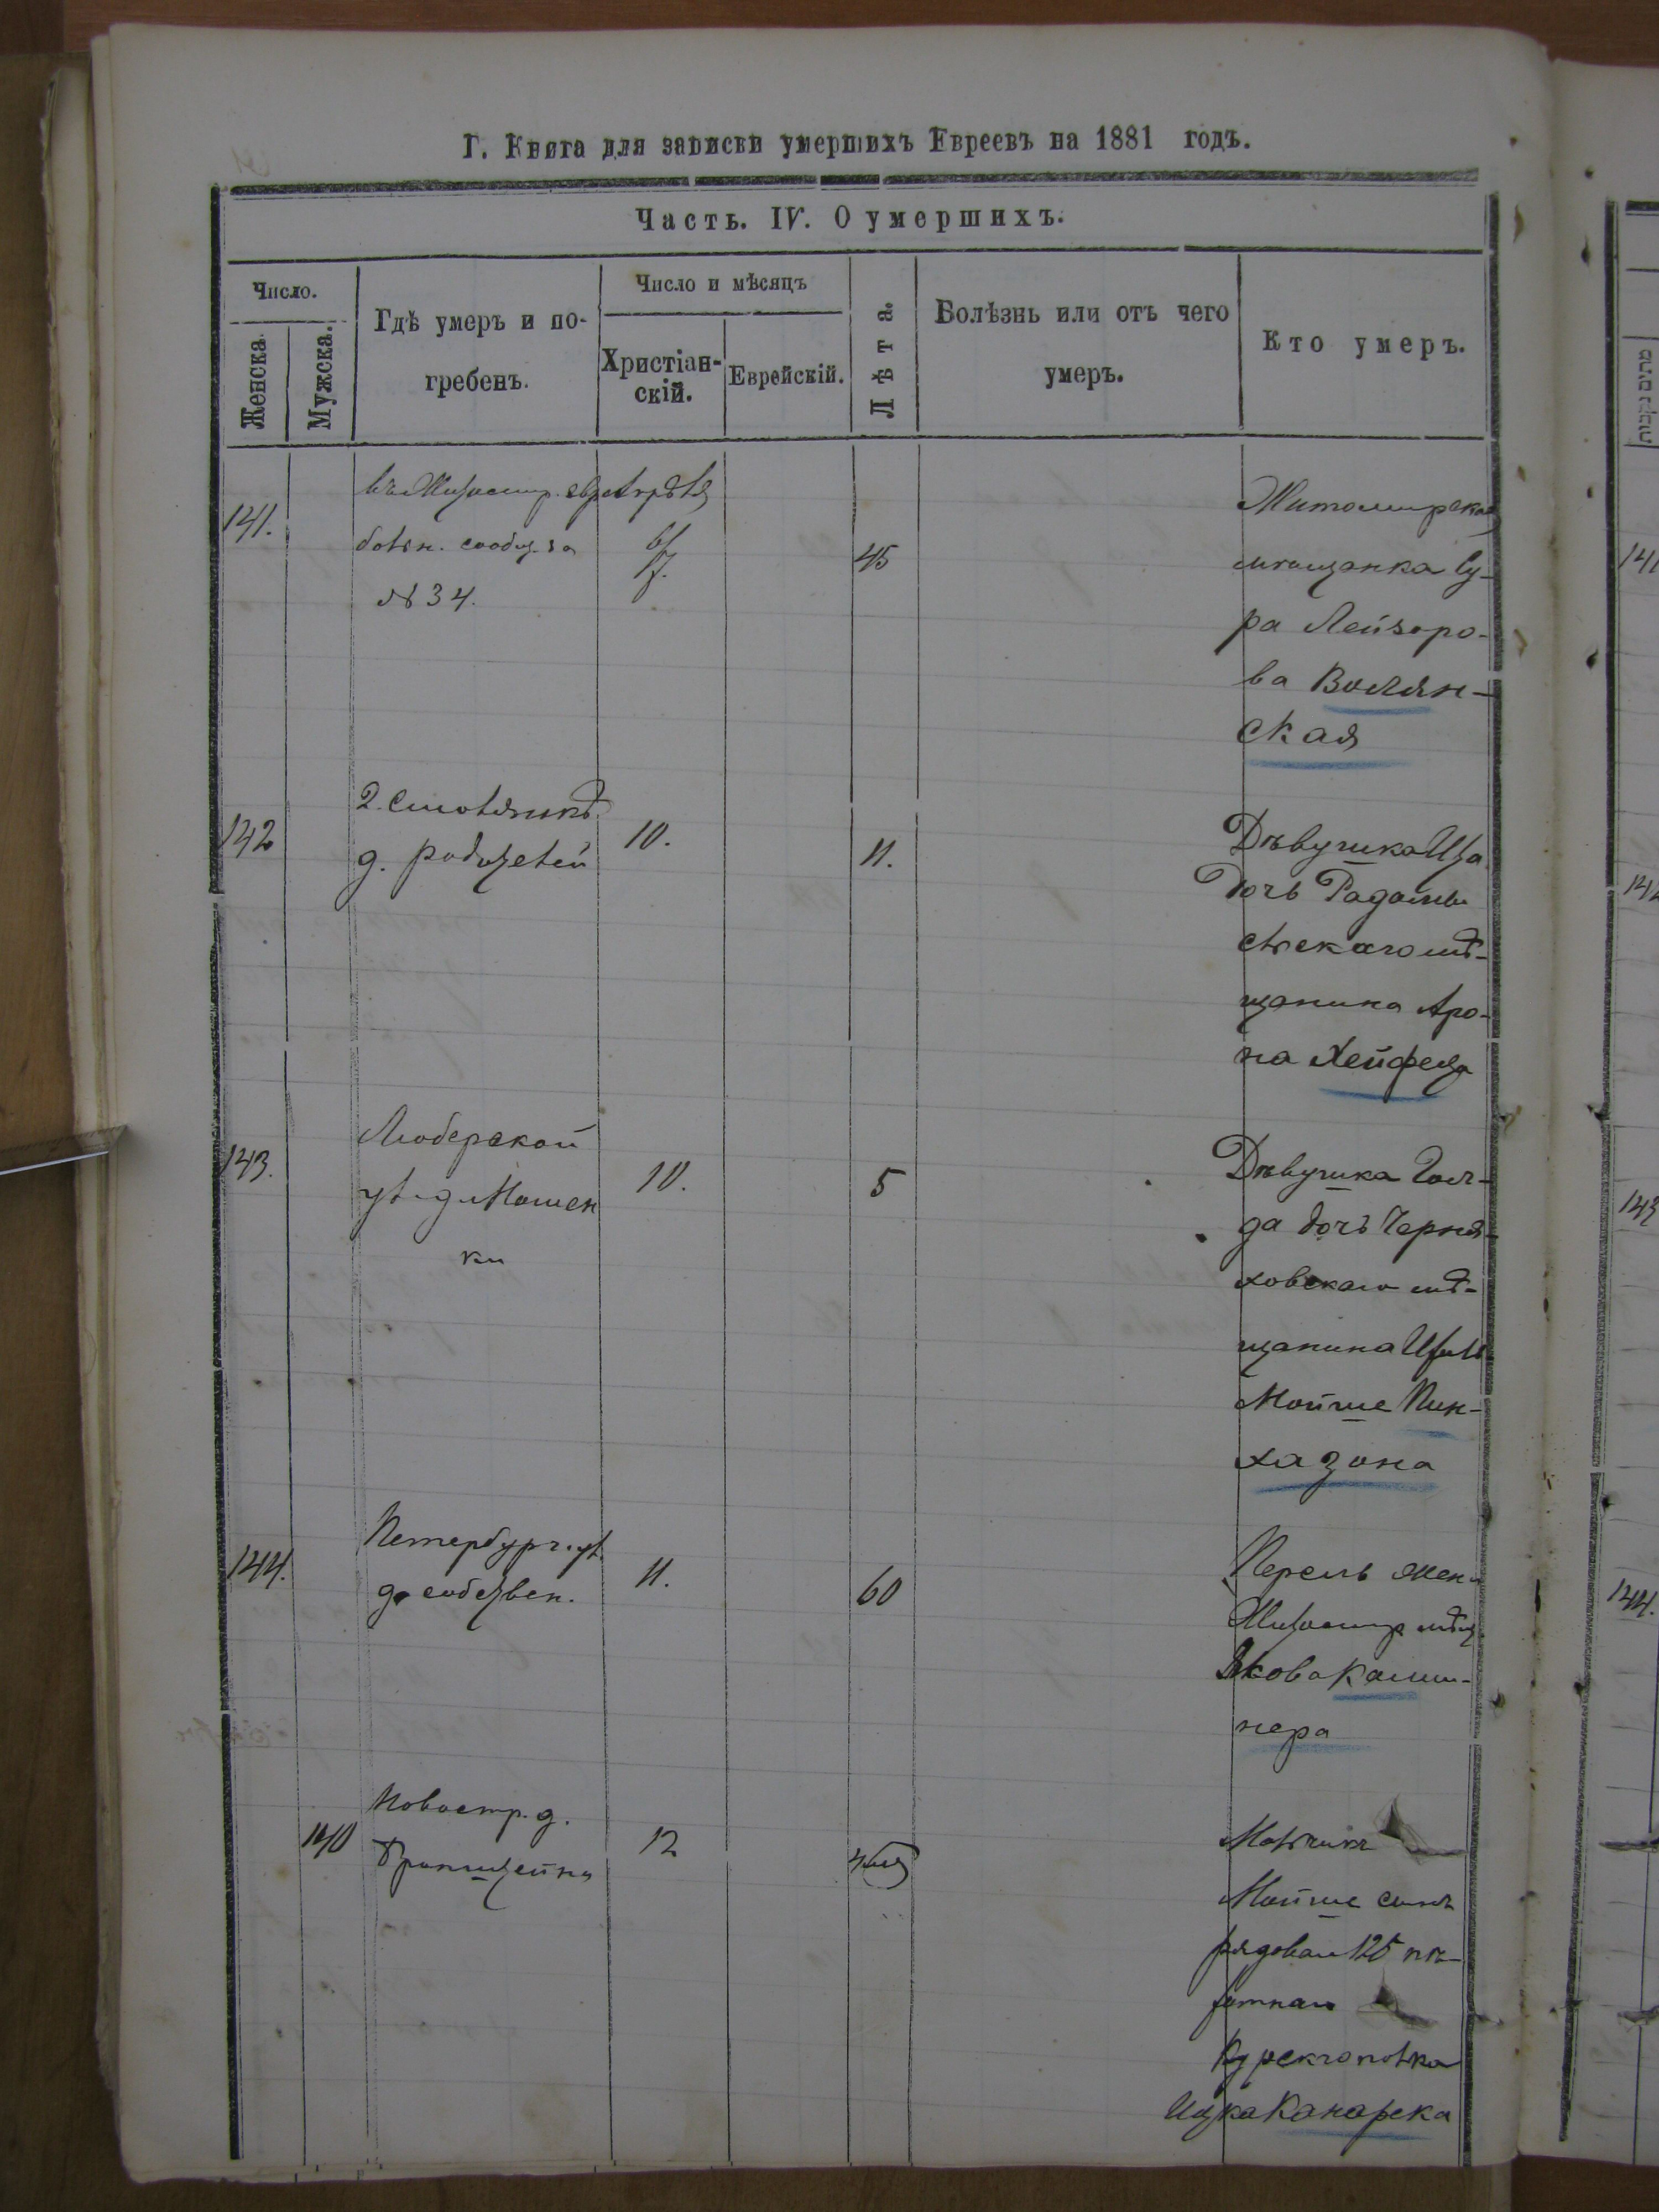 Г. Книга для записки умершихъ Евреевъ на 1881 годъ.
Часть. IV. О умершихъ.
Число.
Женска.
Мужска.
Гдѣ умеръ и по-
гребенъ.
Число и мѣсяцъ
Христіан-
скій.
Еврейскій.
Лѣта.
Болѣзнь или отъ чего
умеръ.
Кто умеръ.
141.
въ Житомир. евр.
больн. сообщ. за
№ 34.
Апрѣля
45
Житомирская
мѣщанка Су-
ра Лейзоро-
ва Волян-
ская
142
д. родителей
10.
11.
Дѣвушка
Дочь Радомы
сльскаго мѣ-
щанина Аро-
на Хейфеца
143.
Любарской
ул. д. Мошен
ки
10.
5
Дѣвушка Гол-
да дочь Черня-
ховскаго мѣ-
щанина
Мойше Пин-
хазона
144.
Петербург. ул.
д. собствен.
11.
60
Перель жен.
Житомир. мѣщ.
Якова Камин-
нера
140
Новостр. д.
12
Мальчикъ
Мойше сынъ
рядовои 125 пѣ-
хотнаго
Курскаго полка
Ицка Канарека
מתים נקבות
141
142
143
144.